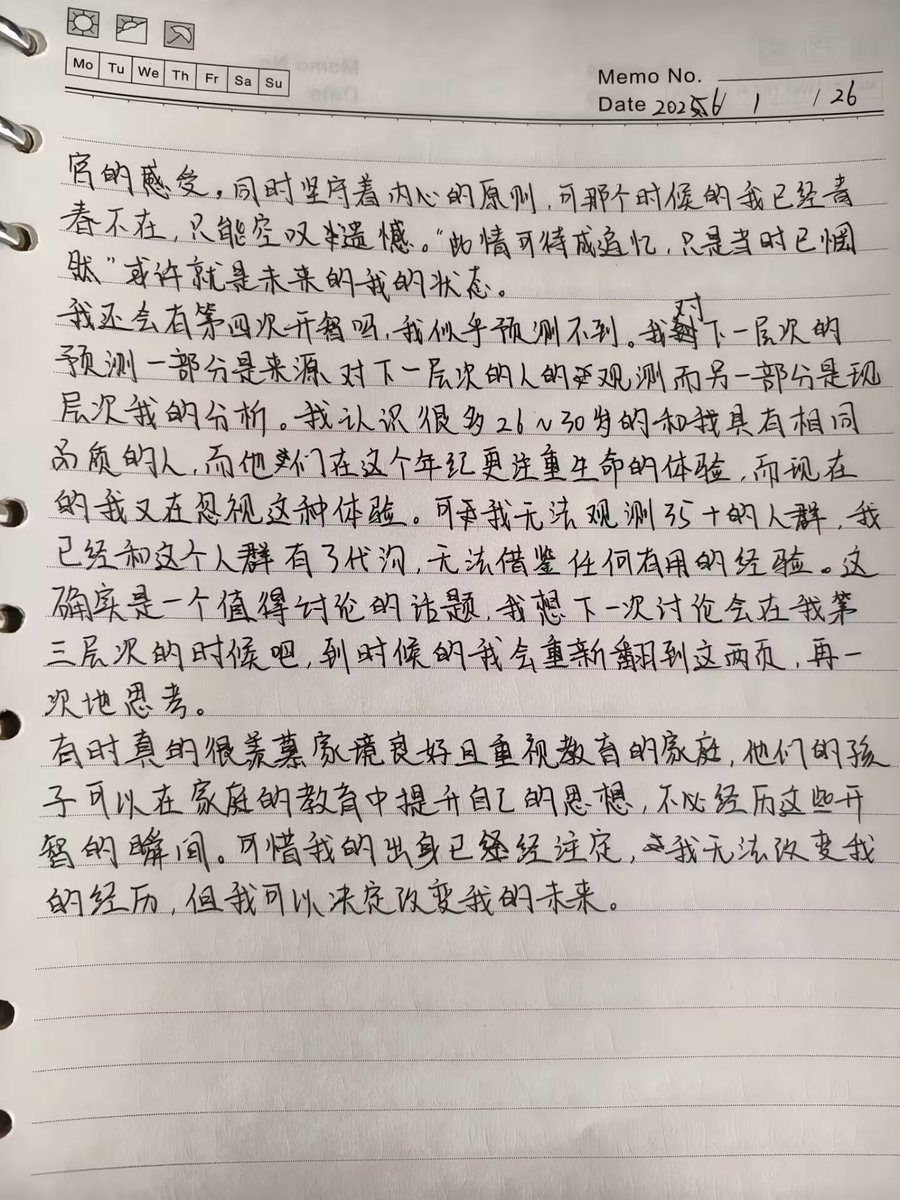 Mo Tu We Th Fr Sa Su
Memo No.
Date 2026 / 1 / 26
官的感受，同时坚守着内心的原则，可那个时候的我已经青
春不在，只能空叹遗憾。“此情可待成追忆，只是当时已惘
然”或许就是未来的我的状态。
我还会有第四次开智吗，我似乎预测不到。我对下一层次的
预测一部分是来源对下一层次的人的观测而另一部分是现
层次我的分析。我认识很多26~30岁的和我具有相同
品质的人，而他们在这个年纪更注重生命的体验，而现在
的我又在忽视这种体验。可我无法观测35+的人群，我
已经和这个人群有了代沟，无法借鉴任何有用的经验。这
确实是一个值得讨论的话题，我想下一次讨论会在我第
三层次的时候吧，到时候的我会重新翻到这两页，再一
次地思考。
有时真的很羡慕家境良好且重视教育的家庭，他们的孩
子可以在家庭的教育中提升自己的思想，不必经历这些开
智的瞬间。可惜我的出身已经注定，我无法改变我
的经历，但我可以决定改变我的未来。